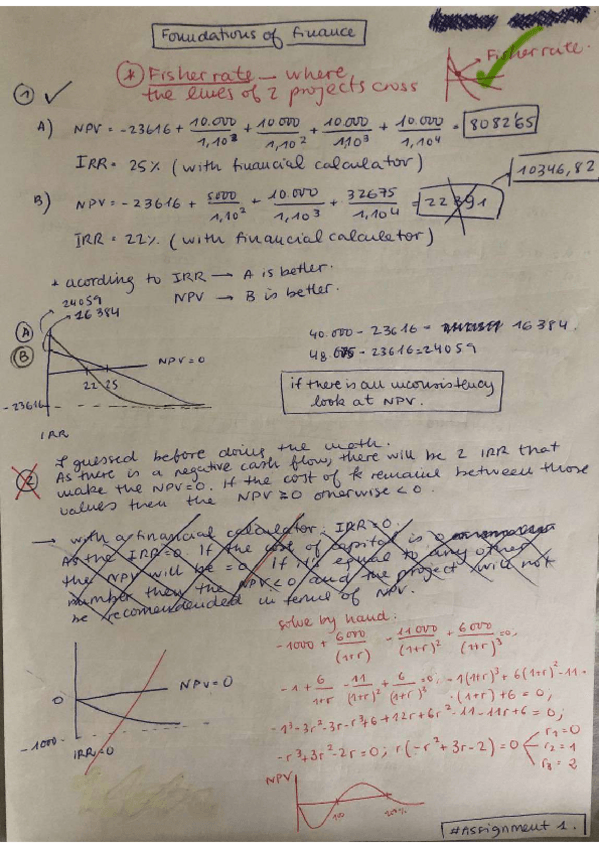 Foundations of finance
* Fisher rate → where
the lines of 2 projects cross
Fisher rate.
1
A) NPV = -23616 + 10.000/1,10² + 10.000/1,10² + 10.000/1,10³ + 10.000/1,10⁴ = 8082'65
IRR = 25% (with financial calculator)
10346,82
B) NPV = -23616 + 5000/1,10² + 10.000/1,10³ + 32675/1,10⁴ = 22391
IRR = 22% (with financial calculator)
* acording to IRR → A is better.
NPV → B is better.
24059
16384
A
B
NPV=0
22 25
-23616
IRR
40.000 - 23616 = 16384.
48.675 - 23616 = 24059
if there is an inconsistency
look at NPV.
2
I guessed before doing the math.
As there is a negative cash flow, there will be 2 IRR that
make the NPV=0. If the cost of k remains between those
values then the NPV ≥0 otherwise <0.
→ with a financial calculator: IRR=0.
As the IRR=0. If the cost of capital is 0
the NPV will be =0 If it's equal to any other
number then the NPV<0 and the project will not
be recomendended in terms of NPV.
solve by hand:
-1000 + 6000/(1+r) - 11000/(1+r)² + 6000/(1+r)³ =0;
-1 + 6/1+r - 11/(1+r)² + 6/(1+r)³ =0; -1(1+r)³ + 6(1+r)² -11.
.(1+r) +6 = 0;
-1³-3r²-3r-r³+6+12r+6r²-11-11r+6=0;
-r³+3r²-2r=0; r(-r²+3r-2)=0
r₁=0
r₂=1
r₃=2
0
NPV=0
-1000
IRR=0
NPV
100
200%
#Assignment 1.